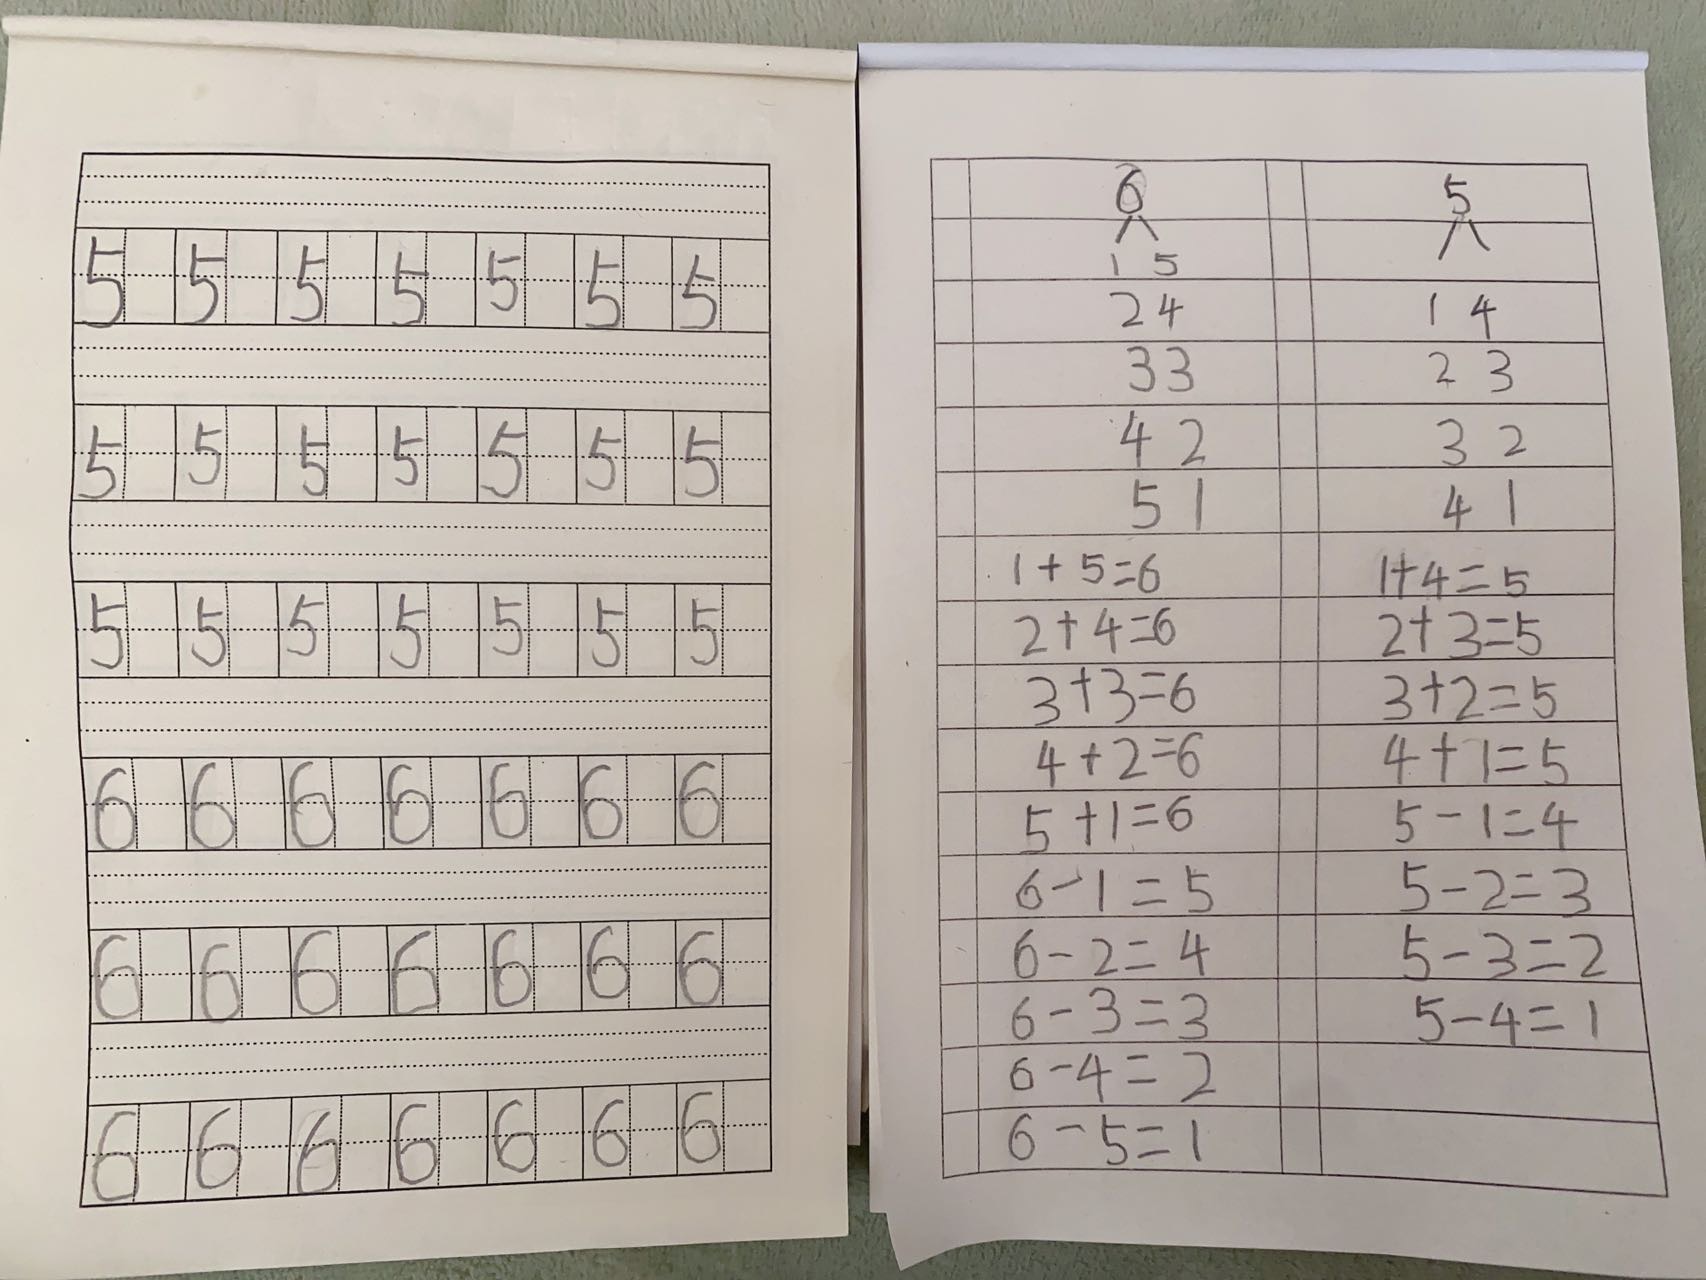 5 5 5 5 5 5 5
5 5 5 5 5 5 5
5 5 5 5 5 5 5
6 6 6 6 6 6 6
6 6 6 6 6 6 6
6 6 6 6 6 6 6
6
1 5
2 4
3 3
4 2
5 1
1+5=6
2+4=6
3+3=6
4+2=6
5+1=6
6-1=5
6-2=4
6-3=3
6-4=2
6-5=1
5
1 4
2 3
3 2
4 1
1+4=5
2+3=5
3+2=5
4+1=5
5-1=4
5-2=3
5-3=2
5-4=1